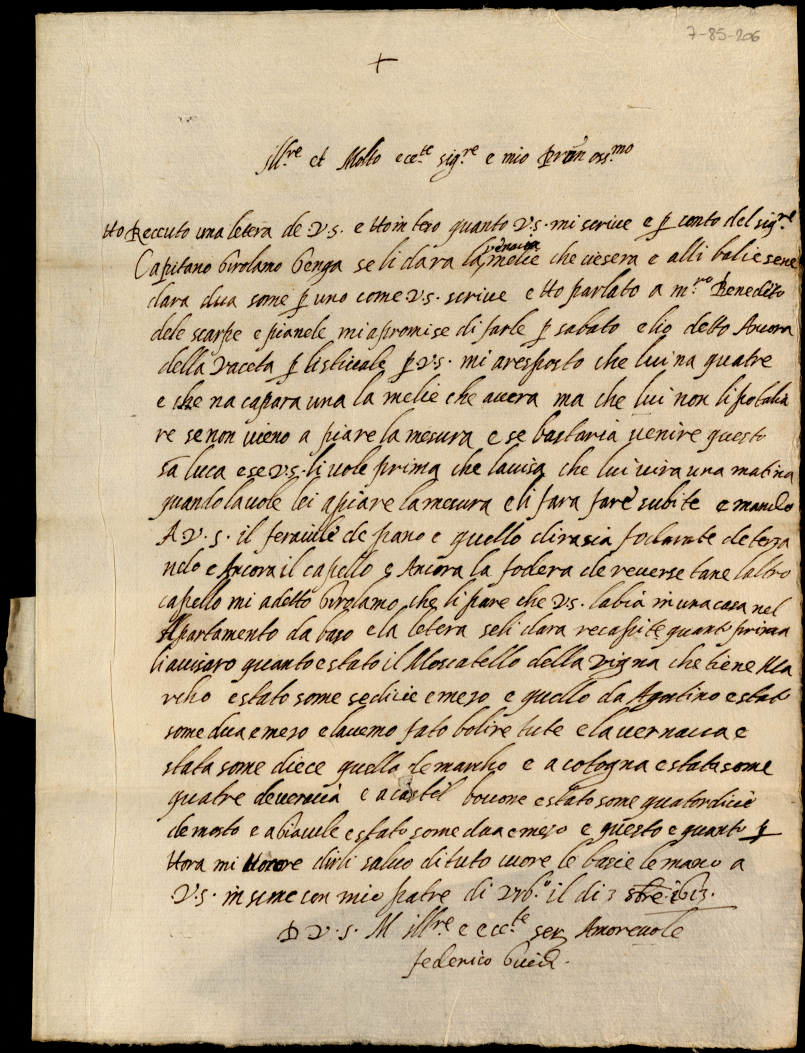 7-85-206
+
Ill.re et Molto ecc.te sig.re e mio pron oss.mo
Ho Receuto una letera de V.S. e Ho inteso quanto V.S. mi scrive e p conto del sig.re
Capitano Girolamo Genga se li dara la vernaia melie che viesera e alli balie sene
dara dua some p uno come V.S. scrive e Ho parlato a m.ro Benedeto
dele scarpe e pianele mi apromise di farle p sabato e lio detto Ancora
della Vaceta p li stivale p V.S. mi a resposto che lui na quatre
e che na capara una la melie che avera ma che lui non li po talia
re se non vieno a piare la mesura e se bastaria venire questo
sā luca e se V.S. li vole prima che lavisa che lui vira una matina
quando la vole lei a piare la mesura e li fara fare subite e mando
A V.S. il feraiule de pano e quello di rasia fodarate de terza
nelo e Ancora il capello e Ancora la fodera de reverse tane laltro
capello mi a detto Girolamo che li pare che V.S. labia in una casa nel
Apartamento da baso e la letera se li dara recapite quanto prima
li avisaro quanto e stato il Moscatello della Vigna che tiene Ma
rcho e stato some sedicie e mezo e quello da Agostino e stato
some dua e mezo e lavemo fato bolire tute e la vernacia e
stata some diece quella de marcho e a cologna e stata some
quatre de veracia e a castel bocone e stato some quatordicie
de mosto e a biavule e stato some dua e mezo e questo e quanto p
Hora mi Hocore dirli salvo di tuto cuore le bacie le mano a
V.S. insieme con mio patre di Urb.o il di 3 8bre 1613.
D V.S. M Ill.re e ecc.te ser Amorevole
federico Guidi.